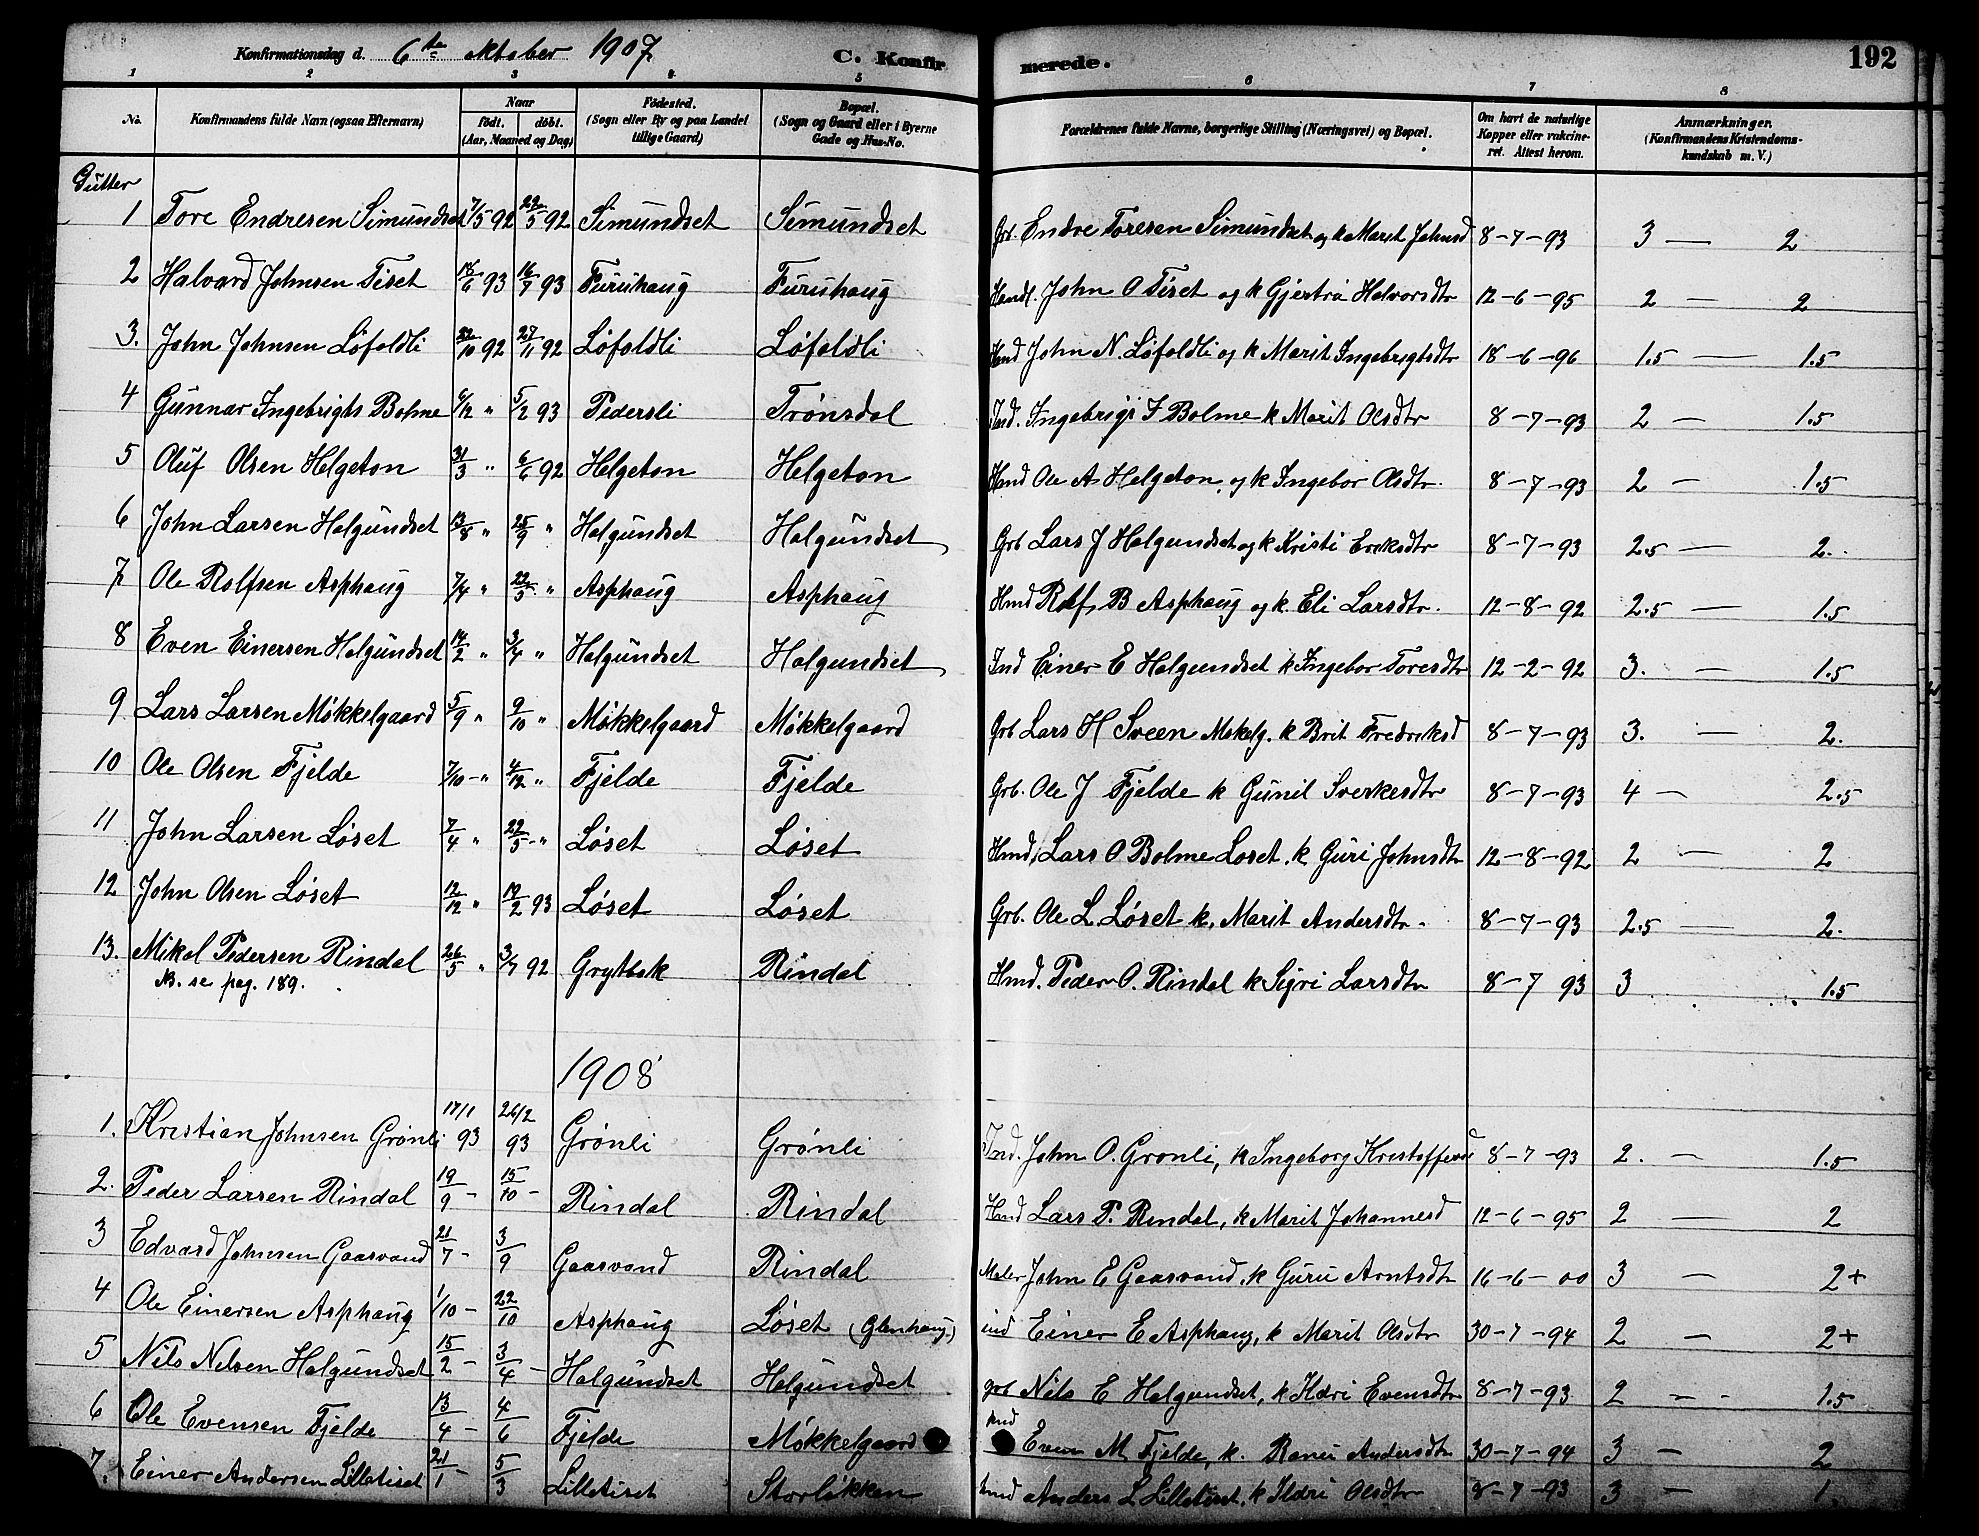 192
Konfirmationsdag d. 6te oktober 1907
C. Konfirmerede.
1 2 3 4 5 6 7 8
No.
Konfirmandens fulde Navn (ogsaa Efternavn)
Naar
födt. döbt.
(Aar, Maaned og Dag)
Födested.
(Sogn eller By og paa Landet tillige Gaard)
Bopæl.
(Sogn og Gaard eller i Byerne Gade og Hus-No.
Forældrenes fulde Navne, borgerlige Stilling (Næringsvei) og Bopæl.
Om havt de naturlige Kopper eller vakcineret. Attest herom.
Anmærkninger.
(Konfirmandens Kristendomskundskab m. V.)
Gutter
1 Tore Endresen Simundset 7/5 92 22/5 92 Simundset Simundset Grb. Endre Toresen Simundset og k Marit Johnsd 8-7-93 3 — 2
2 Halvard Johnsen Tiset 18/6 93 16/7 93 Furuhaug Furuhaug Hmd. John O Tiset og k Gjertru Halvorsdtr 12-6-95 2 — 2
3. John Johnsen Løfoldli 22/10 92 27/11 92 Løfoldli Løfoldli Hmd John N. Løfoldli og k Marit Ingebrigtsdtr 18-6-96 1.5 — 1.5
4 Gunnar Ingebrigts Bolme 6/12 " 5/2 93 Pedersli Trønsdal Ind. Ingebrigt I Bolme k Marit Olsdtr 8-7-93 2 — 1.5
5 Oluf Olsen Helgeton 31/3 " 6/6 92 Helgeton Helgeton Hmd Ole A Helgeton, og k Ingebor Olsdtr. 8-7-93 2 — 1.5
6 John Larsen Halgundset 13/8 " 25/9 " Halgundset Halgundset Grb Lars J Halgundset og k Kristi Eriksdtr 8-7-93 2.5 — 2.
7 Ole Rolfsen Asphaug 7/4 " 22/5 " Asphaug Asphaug Hmd Rolf B Asphaug og k. Eli Larsdtr. 12-8-92 2.5 — 1.5
8 Even Einersen Halgundset 14/2 " 3/4 " Halgundset Halgundset Ind Einer E Halgundset k Ingebor Toresdtr 12-2-92 3. — 1.5
9 Lars Larsen Møkkelgaard 5/9 " 9/10 " Møkkelgaard Møkkelgaard Grb Lars H Sveen Mekelg. k Brit Fredriksd 8-7-93 3. — 2.
10 Ole Olsen Fjelde 7/10 - " 4/12 " Fjelde Fjelde Grb. Ole J Fjelde k Gunil Sverkesdtr 8-7-93 4 — 2.5
11 John Larsen Løset 7/4 " 22/5 - " Løset Løset Hmd, Lars O Bolme Løset, k Guri Johnsdtr 12-8-92 2 — 2
12 John Olsen Løset 12/12 " 19/2 93 Løset Løset Grb. Ole L Løset k. Marit Andersdtr. 8-7-93 2.5 — 2.
13. Mikal Pedersen Rindal 26/5 " 3/7 92 Grytbak Rindal Hmd. Peder O. Rindal k Sigri Larsdtr 8-7 93 3 1.5
NB. se pag. 189.
1908
1. Kristian Johnsen Grønli 17/1 93 26/2 93 Grønli Grønli Ind. John O. Grønli, k Ingeborg Kristoffersd 8-7-93 2. — 1.5
2. Peder Larsen Rindal 19/9 - 15/10 - Rindal Rindal Hmd Lars P. Rindal, k Marit Johannesd 12-6-95 2 — 2
3 Edvard Johnsen Gaasvand 21/7 - 3/9 Gaasvand Rindal Maler John E Gaasvand, k Guru Arntsdtr 16-6-00 3 — 2+
4 Ole Einersen Asphaug 1/10 - 22/10 Asphaug Løset (Glenhaug) ind Einer E Asphaug, k Marit Olsdtr 30-7-94 2 — 2+
5 Nils Nilsen Halgundset 15/2 - 3/4 - Halgundset Halgundset grb Nils E Halgundset, k Ildri Evensdtr 8-7-93 2 — 1.5
6 Ole Evensen Fjelde 13/4 - 4/6 Fjelde Møkkelgaard hmd Even M Fjelde, k. Andersdtr 30-7-94 3 — 2
7. Einer Andersen Lilletiset 21/1 - 5/3 Lilletiset Storløkken hmd Anders L Lilletiset, k Ildri Olsdtr 8-7-93 3 — 1.